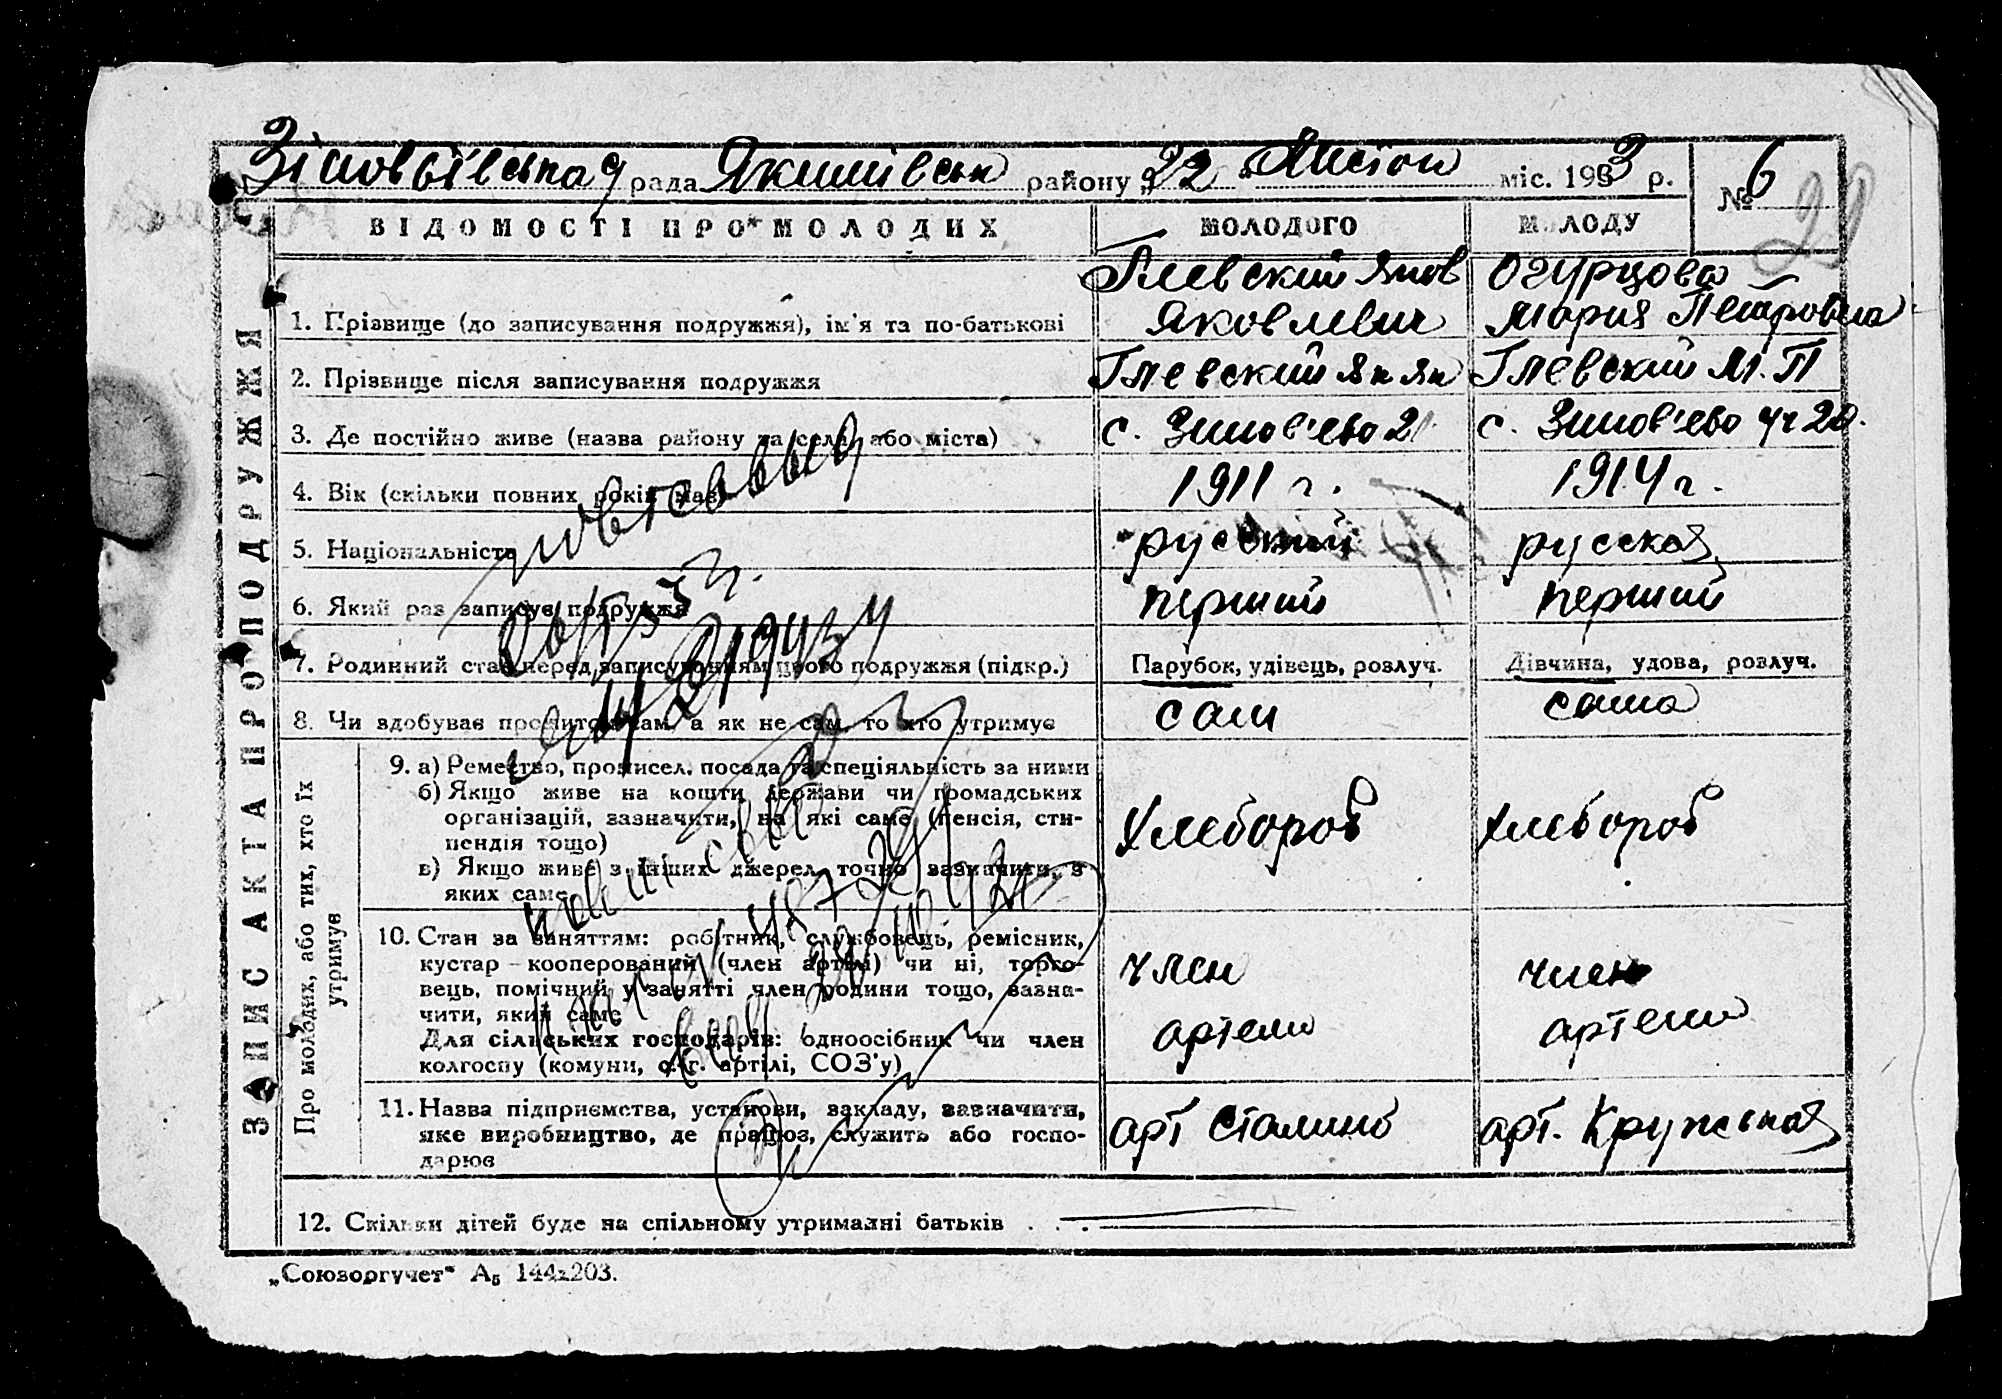 Зіновьівська рада Якимівськ району „22“ Листоп міс. 1933 р. № 6
29
ВІДОМОСТІ ПРО МОЛОДИХ МОЛОДОГО МОЛОДУ
ЗАПИС АКТА ПРО ПОДРУЖЖЯ
1. Прізвище (до записування подружжя), ім'я та по-батькові
Глевский Яков
Яковлевич
Огурцова
Мария Петровна
2. Прізвище після записування подружжя Глевский Як Як Глевский М. П
3. Де постійно живе (назва району та села або міста) с. Зинов'ево 2 с. Зинов'ево уч 2
4. Вік (скільки повних років має) 1911 г. 1914 г.
5. Національність русский русская
6. Який раз записує подружжя перший перший
7. Родинний стан перед записуванням цього подружжя (підкр.) Парубок, удівець, розлуч. Дівчина, удова, розлуч.
8. Чи здобуває прожиток сам, а як не сам, то хто утримує сам сама
Про молодих, або тих, хто їх
утримує
9. а) Ремество, промисел, посада та спеціяльність за ними
б) Якщо живе на кошти держави чи громадських
організацій, зазначити, на які саме (пенсія, сти-
пендія тощо)
в) Якщо живе з інших джерел, точно зазначити, з
яких саме
Хлебороб хлебороб
10. Стан за заняттям: робітник, службовець, ремісник,
кустар – кооперований (член артілі) чи ні, торго-
вець, помічний у занятті член родини тощо, зазна-
чити, який саме
Для сільських господарів: одноосібник чи член
колгоспу (комуни, с.-г. артілі, СОЗ'у)
член
артели
член
артели
11. Назва підприємства, установи, закладу, зазначити,
яке виробництво, де працює, служить або госпо-
дарює
арт Сталино арт. Крупська
12. Скільки дітей буде на спільному утриманні батьків . . .
„Союзоргучет“ А₅ 144х203.